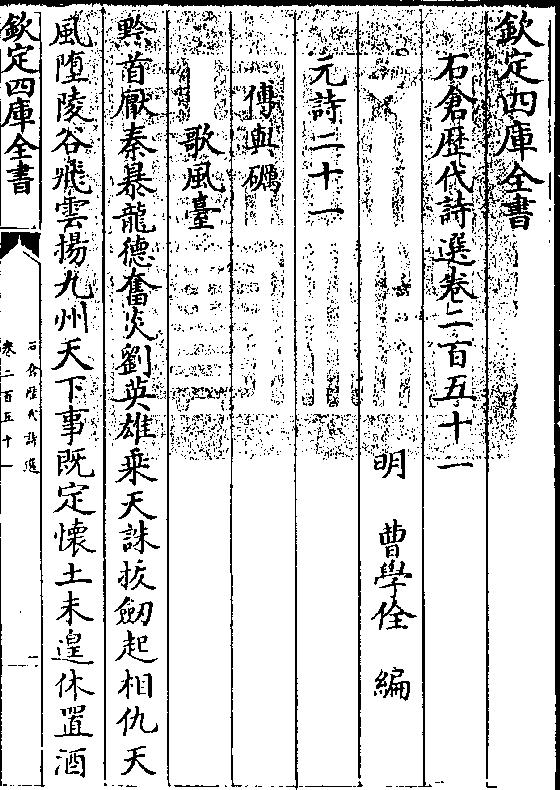 欽定四庫全書
石倉歴代詩選卷二百五十一
明 曹學佺 編
元詩二十一
傅與礪
歌風臺
黔首厭秦暴龍德奮炎劉英雄乗天誅拔劒起相仇天
風墮陵谷飛雲揚九州天下事既定懐土未遑休置酒
欽定四庫全書
石倉歴代詩選
卷二百五十一
一